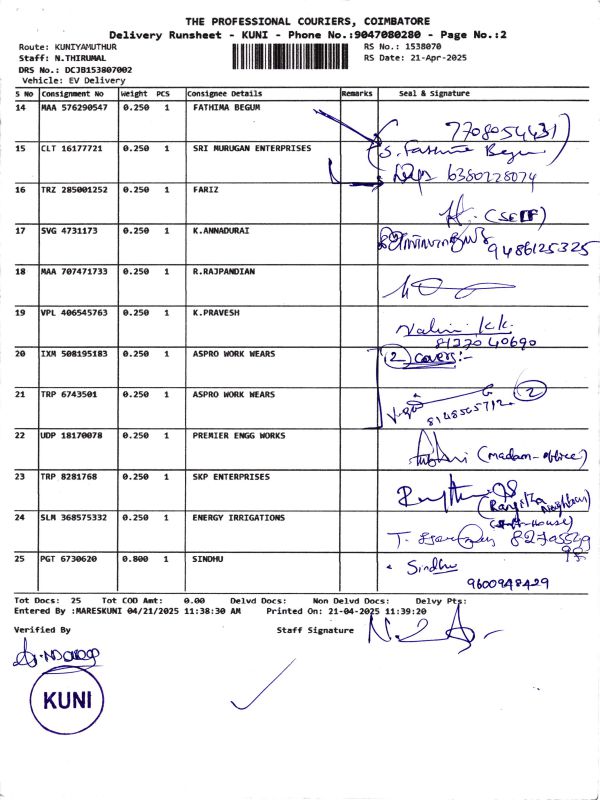 THE PROFESSIONAL COURIERS, COIMBATORE
Delivery Runsheet - KUNI - Phone No.:9047080280 - Page No.:2
Route: KUNIYAMUTHUR
RS No.: 1538070
Staff: N.THIRUMAL
RS Date: 21-Apr-2025
DRS No.: DCJB153807002
Vehicle: EV Delivery
S No Consignment No Weight PCS Consignee Details Remarks Seal & Signature
14 MAA 576290547 0.250 1 FATHIMA BEGUM
7708054431
15 CLT 16177721 0.250 1 SRI MURUGAN ENTERPRISES
S. Fathima Begum
6380228074
16 TRZ 285001252 0.250 1 FARIZ
(SELF)
17 SVG 4731173 0.250 1 K.ANNADURAI
9486125325
18 MAA 707471733 0.250 1 R.RAJPANDIAN
19 VPL 406545763 0.250 1 K.PRAVESH
K.K.
8122040690
20 IXM 508195183 0.250 1 ASPRO WORK WEARS
2 covers:-
21 TRP 6743501 0.250 1 ASPRO WORK WEARS
2
8148565712
22 UDP 18170078 0.250 1 PREMIER ENGG WORKS
(madam-office)
23 TRP 8281768 0.250 1 SKP ENTERPRISES
24 SLM 368575332 0.250 1 ENERGY IRRIGATIONS
T.
25 PGT 6730620 0.800 1 SINDHU
Sindhu
9600948429
Tot Docs: 25 Tot COD Amt: 0.00 Delvd Docs: Non Delvd Docs: Delvy Pts:
Entered By :MARESKUNI 04/21/2025 11:38:30 AM Printed On: 21-04-2025 11:39:20
Verified By
Staff Signature
KUNI